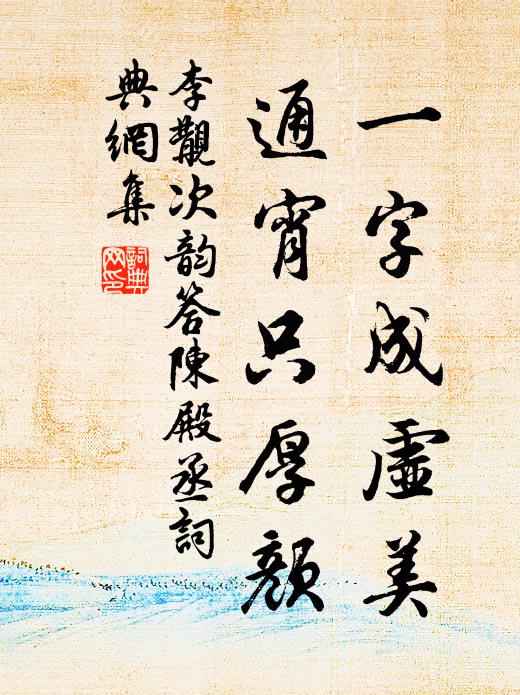 一字成虛美
通宵只厚顏
李覯次韵答陳殿丞詞
典網集
詞典
网印